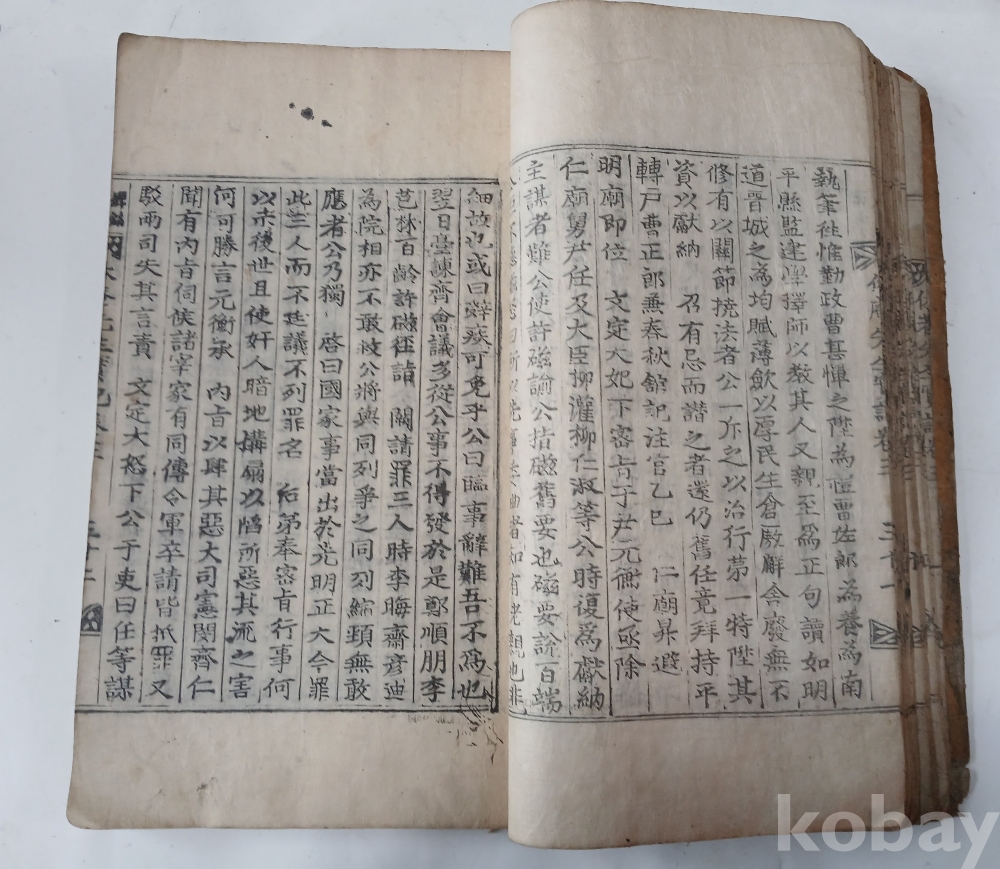 執筆徒惟勤政曹甚憚之陞為禮曹佐郎為養為南
平縣監建學擇師以敎其人又親至為正句讀如明
道晉城之為均賦薄斂以厚民生倉廒廨舍廢無不
修有以關節撓法者公一斥之以治行第一特陞其
資以獻納 召有忌而譖之者還仍舊任竟拜持平
轉戶曹正郎兼春秋館記注官乙巳 仁廟昇遐
明廟即位 文定大妃下密旨于尹元衡使亟除
仁廟舅尹任及大臣柳灌柳仁淑等公時復為獻納
主謀者難公使許磁諭公拮磁舊要也磁要說百端
細故也或曰辭疾可免乎公曰臨事辭難吾不為也
翌日臺諫齊會議多從公事不得發於是鄭順朋李
芑林百齡許磁徑詣 闕請罪三人時李晦齋彦迪
為院相亦不敢救公將與同列爭之同列縮頸無敢
應者公乃獨 啓曰國家事當出於光明正大今罪
此三人而不廷議不列罪名 右第奉密旨行事何
以示後世且使奸人暗地搆扇以陷所惡其流之害
何可勝言元衡承 內旨以肆其惡大司憲閔齊仁
聞有內旨伺候諸宰家有同傳令軍卒請皆抵罪又
駁兩司失其言責 文定大怒下公于吏曰任等謀
kobay